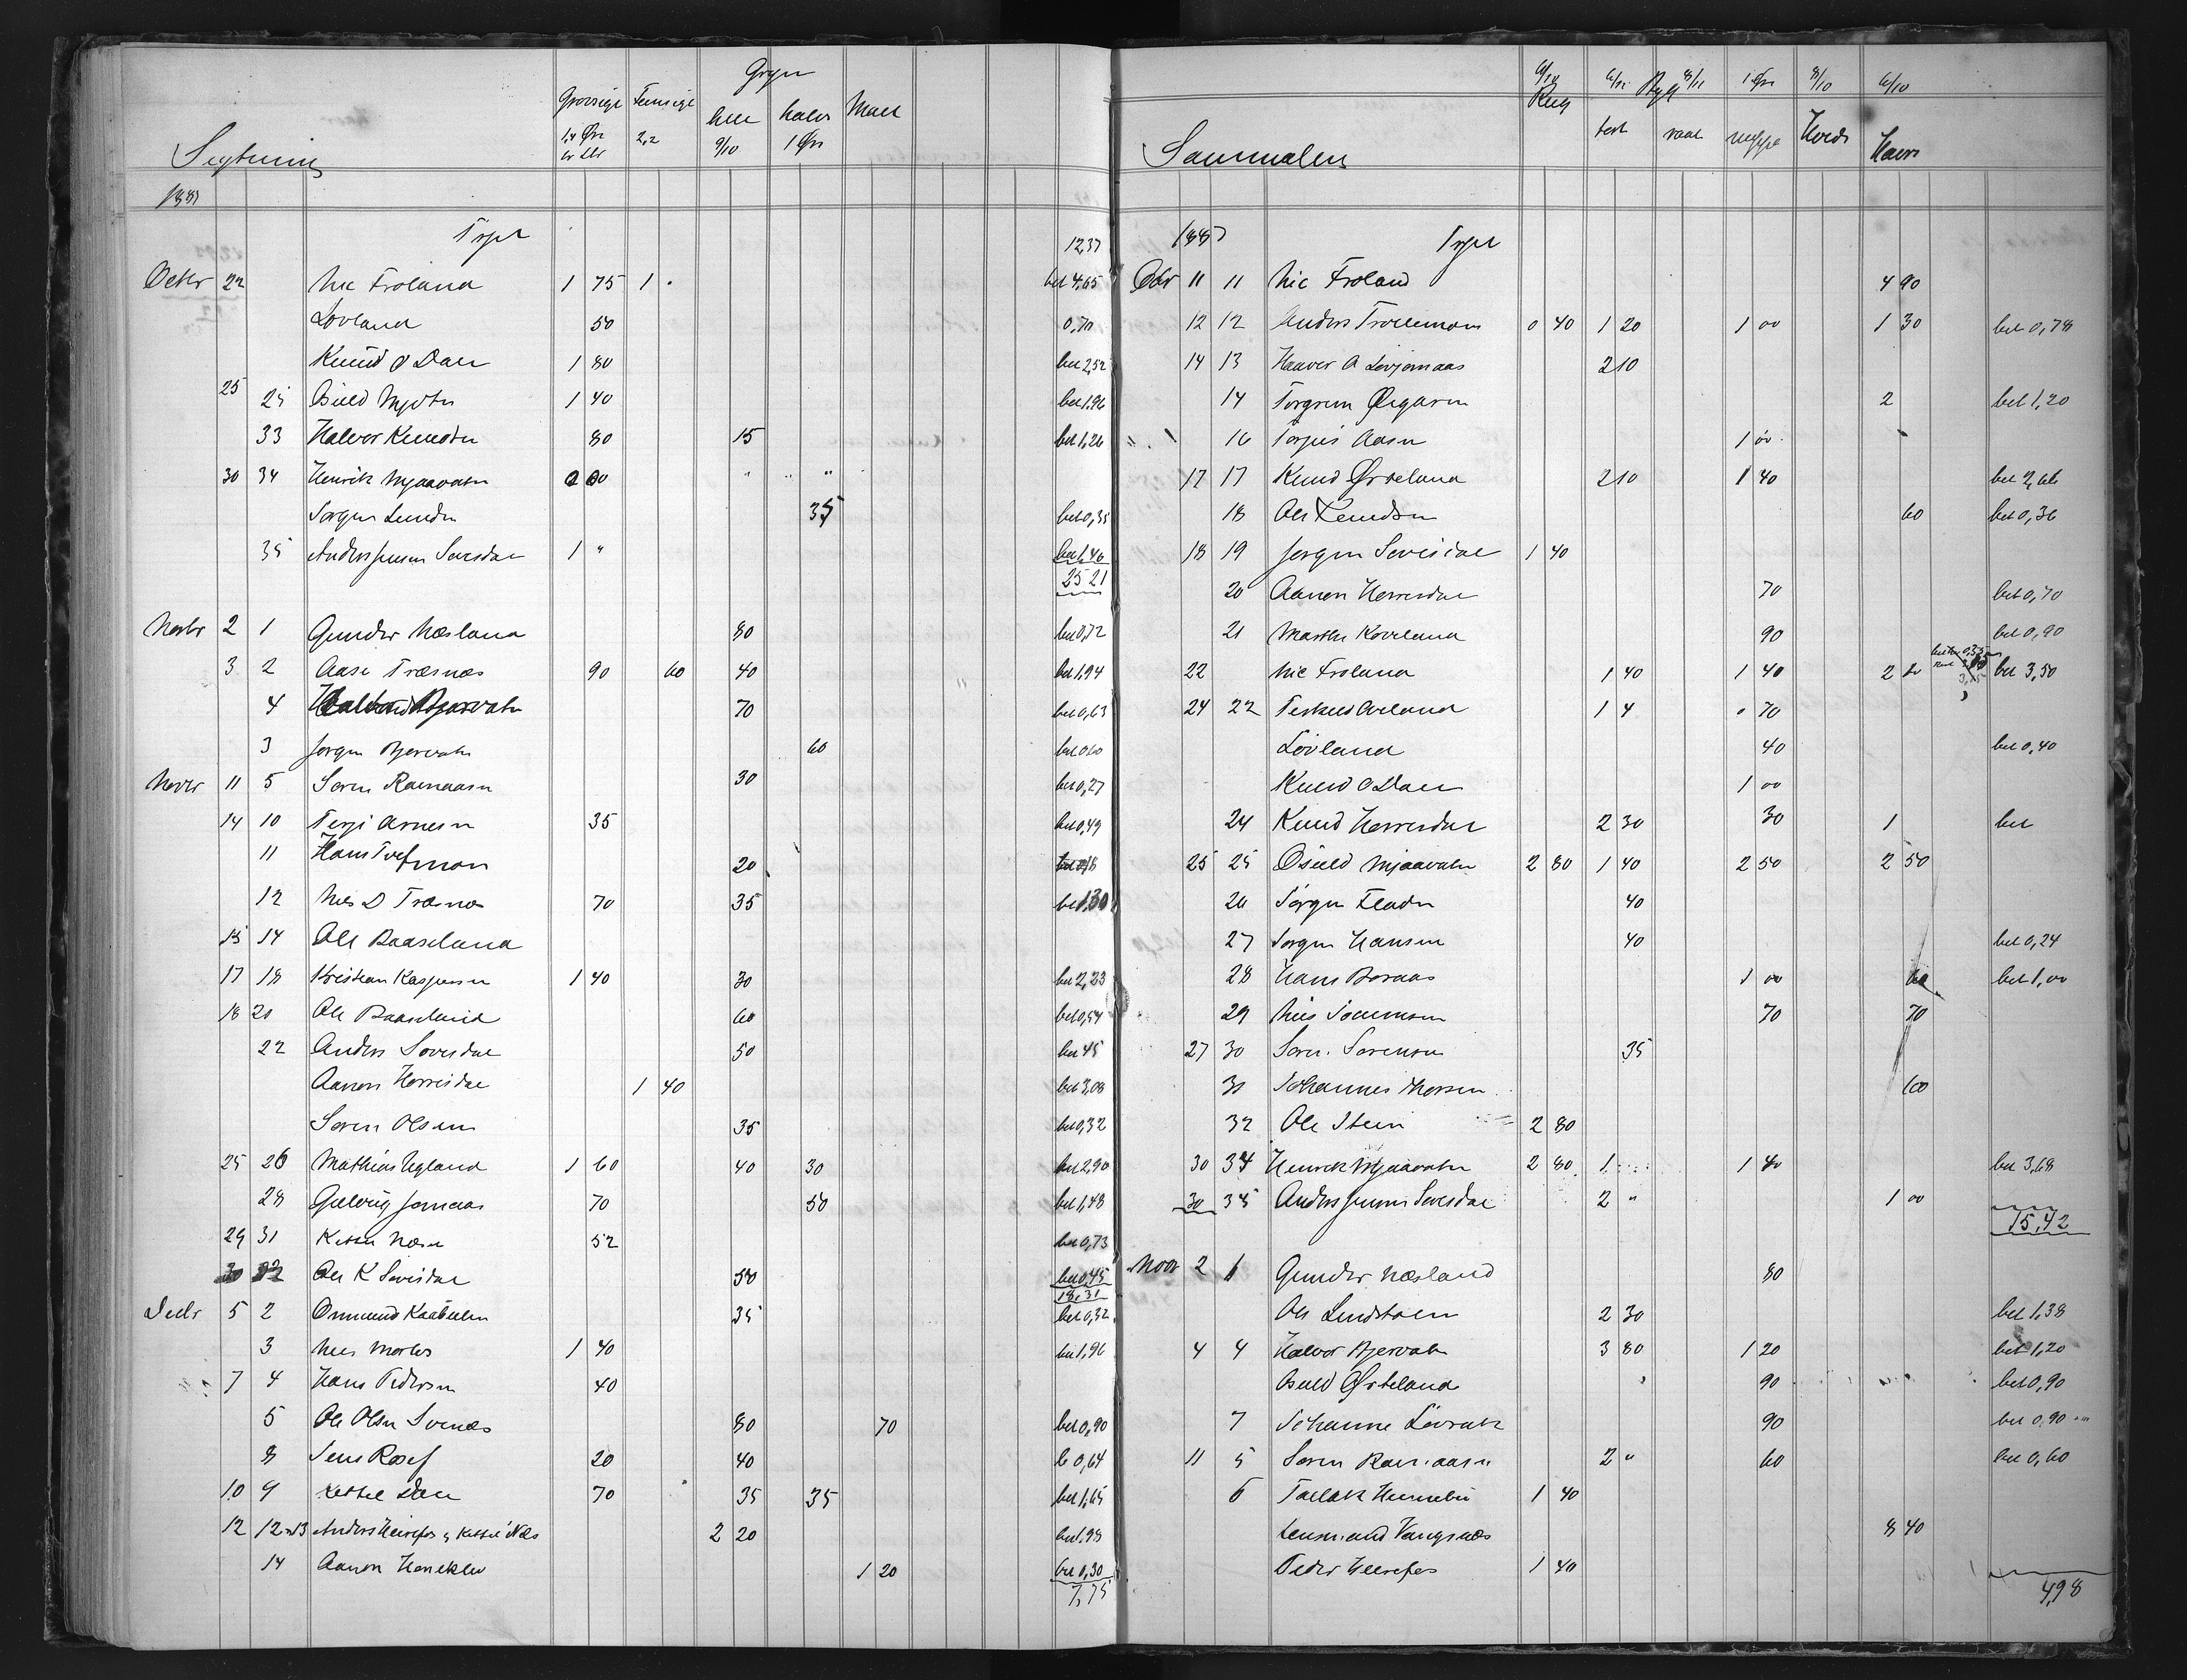 Gryn
Grovsigt Fiinsigt hele halve Malt
1,4 Øre 2,2 9/10 1 Øre
Sigtning
1887
Trpt 12,37
Octbr 22 Nic Froland 1 75 1 . bet 4,65
Lovland 50 0,70
Knud O Dale 1 80 bet 2,52
25 25 Osuld Mjvtn 1 40 bet 1,96
33 Halvor Knudsen 80 15 bet 1,26
30 34 Henrik Mjaavatn 2 00 " "
Jørgen Lunden 35 bet 0,35
35 Anders Jensen Sevesdal 1 " bet 1,40
25 21
Novbr 2 1 Gunder Næsland 80 bet 0,72
3 2 Aase Træsnæs 90 60 40 bet 1,94
4 70 bet 0,63
3 Jørgen Bjervatn 60 bet 0,60
Novbr 11 5 Søren Ramaasen 30 bet 0,27
14 10 Terje Arnesen 35 bet 0,49
11 Hans 20 bet 0,18
12 Nils D Træsnæs 70 35 bet 1,30
15 14 Ole Baaseland
17 18 Kristian Kaspersen 1 40 30 bet 2,23
18 20 Ole Baaseland 60 bet 0,54
22 Anders Sovesdal 50 bet 45
Aanon Herresdal 1 40 bet 3,08
Søren Olsen 35 bet 0,32
25 26 Mathias Ugland 1 60 40 30 bet 2,90
28 Gulleug Jomaas 70 50 bet 1,48
29 31 Kittel Næsn 52 bet 0,73
30 32 Ole K Sevisdal 50 bet 0,45
18,31
Decbr 5 2 Ommund Kaabuln 35 bet 0,32
3 Nils 1 40 bet 1,96
7 4 Hans Pedersen 40
5 Ole Olsen Svenæs 80 70 bet 0,90
8 Jens Rosef 20 40 b 0,64
10 9 Kittel Dale 70 35 35 bet 1,65
12 12 & 13 Anders Heirefos & Kittel Næs 2 20 bet 1,98
14 Aanon Heneklev 1 20 bet 0,30
7,75
6/10 6/11 Byg 8/11 1 Øre 8/10 6/10
Rug tort raat Hvede Havre
Sammalen
1887 Trpt
Obr 11 11 Nic Froland 4 90
12 12 Anders Trollemoen 0 40 1 20 1 00 1 30 bet 0,78
14 13 Haaver A Lovjomaas 2 10
14 Torgrim Øigaren 2 bet 1,20
16 Torjus Aasen 1 00
17 17 Knud Ørteland 2 10 1 40 bet 2,66
18 Ole Knudsen 60 bet 0,36
18 19 Jørgen Sevesdal 1 40
20 Aanon Herresdal 70 bet 0,70
21 Marthe Kovland 90 bet 0,90
22 Nic Froland 1 40 1 40 2 60 bet 3,50
24 22 Terkild Oveland 1 4 . 70
Lovland 40 bet 0,40
Knud O Dale 1 00
24 Knud Herresdal 2 30 30 1 bet
25 25 Osuld Mjaavatn 2 80 1 40 2 50 2 50
26 Jørgen Fladen 40
27 Jørgen Hansen 40 bet 0,24
28 Hans Boraas 1 00 60 bet 1,00
29 Nils 70 70
27 30 Søren Sørensen 35
31 Johannes Thorsen 60
32 Ole Stein 2 80
30 34 Henrik Mjaavatn 2 80 1 1 40 bet 3,68
30 35 Anders Jensen Sevesdal 2 " 1 00
15,42
Novr 2 1 Gunder Næsland 80
Ole Lindstølen 2 30 bet 1,38
4 4 Halvor Bjervatn 3 80 1 20 bet 1,20
Osuld Ørteland 90 bet 0,90
7 Johanne Lovrak 90 bet 0,90
11 5 Søren Ramaasen 2 " 60 bet 0,60
6 Tallak Hunnebu 1 40
Lensmand Vangsnæs 8 40
Peder Heirefos 1 40
4,98